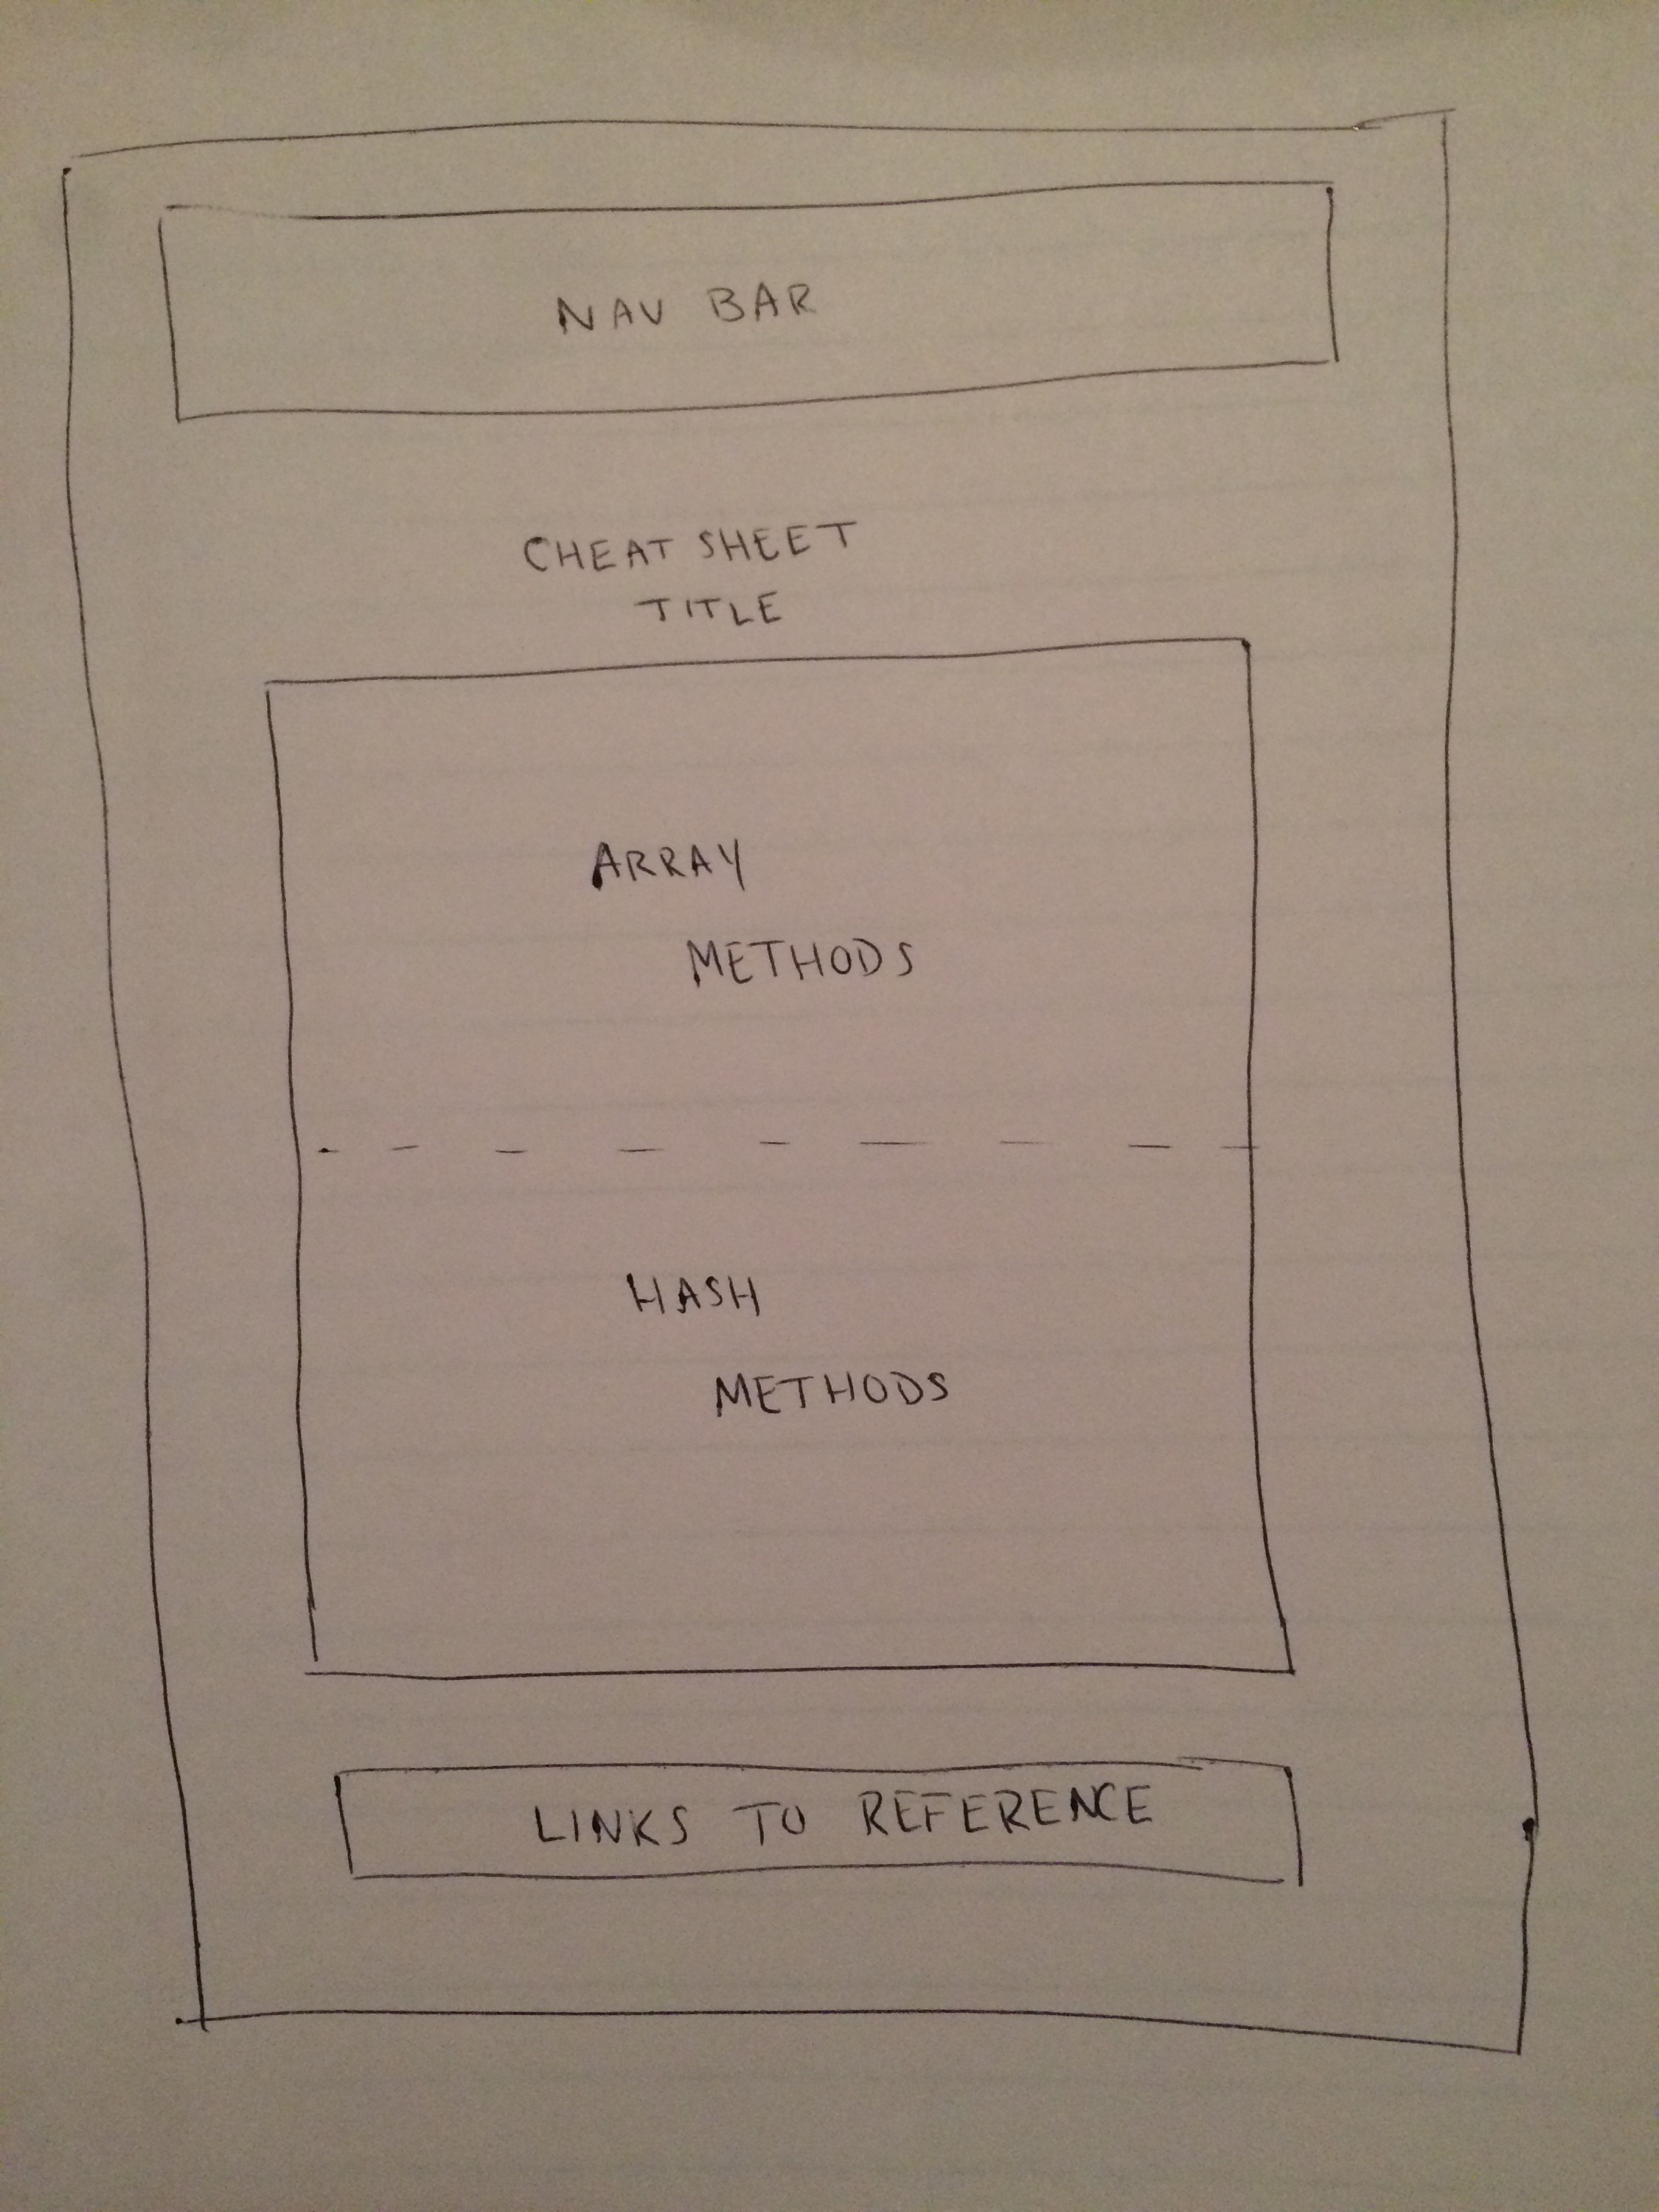 NAV BAR
CHEAT SHEET
TITLE
ARRAY
METHODS
HASH
METHODS
LINKS TO REFERENCE